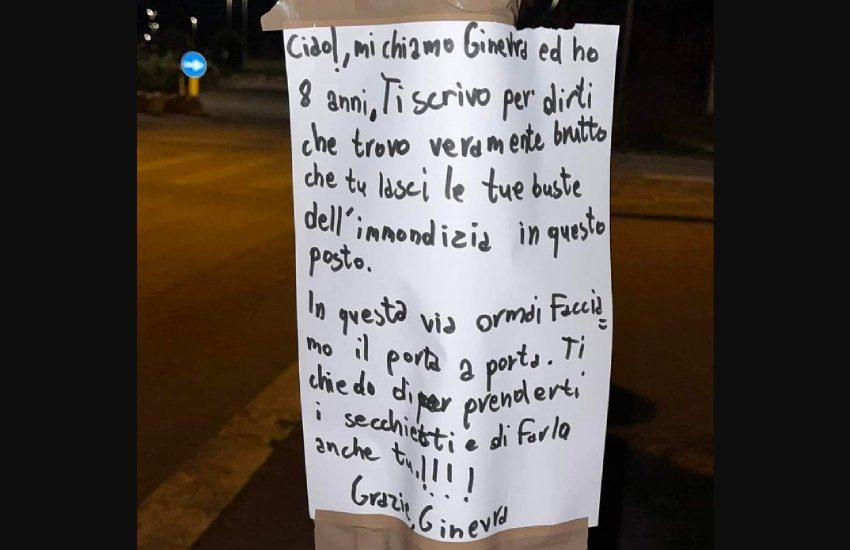 Ciao!, mi chiamo Ginevra ed ho
8 anni, Ti scrivo per dirti
che trovo veramente brutto
che tu lasci le tue buste
dell'immondizia in questo
posto.
In questa via ormai Faccia=
mo il porta a porta. Ti
chiedo di prenderti
i secchietti e di farla
anche tu.!!!!
Grazie, Ginevra